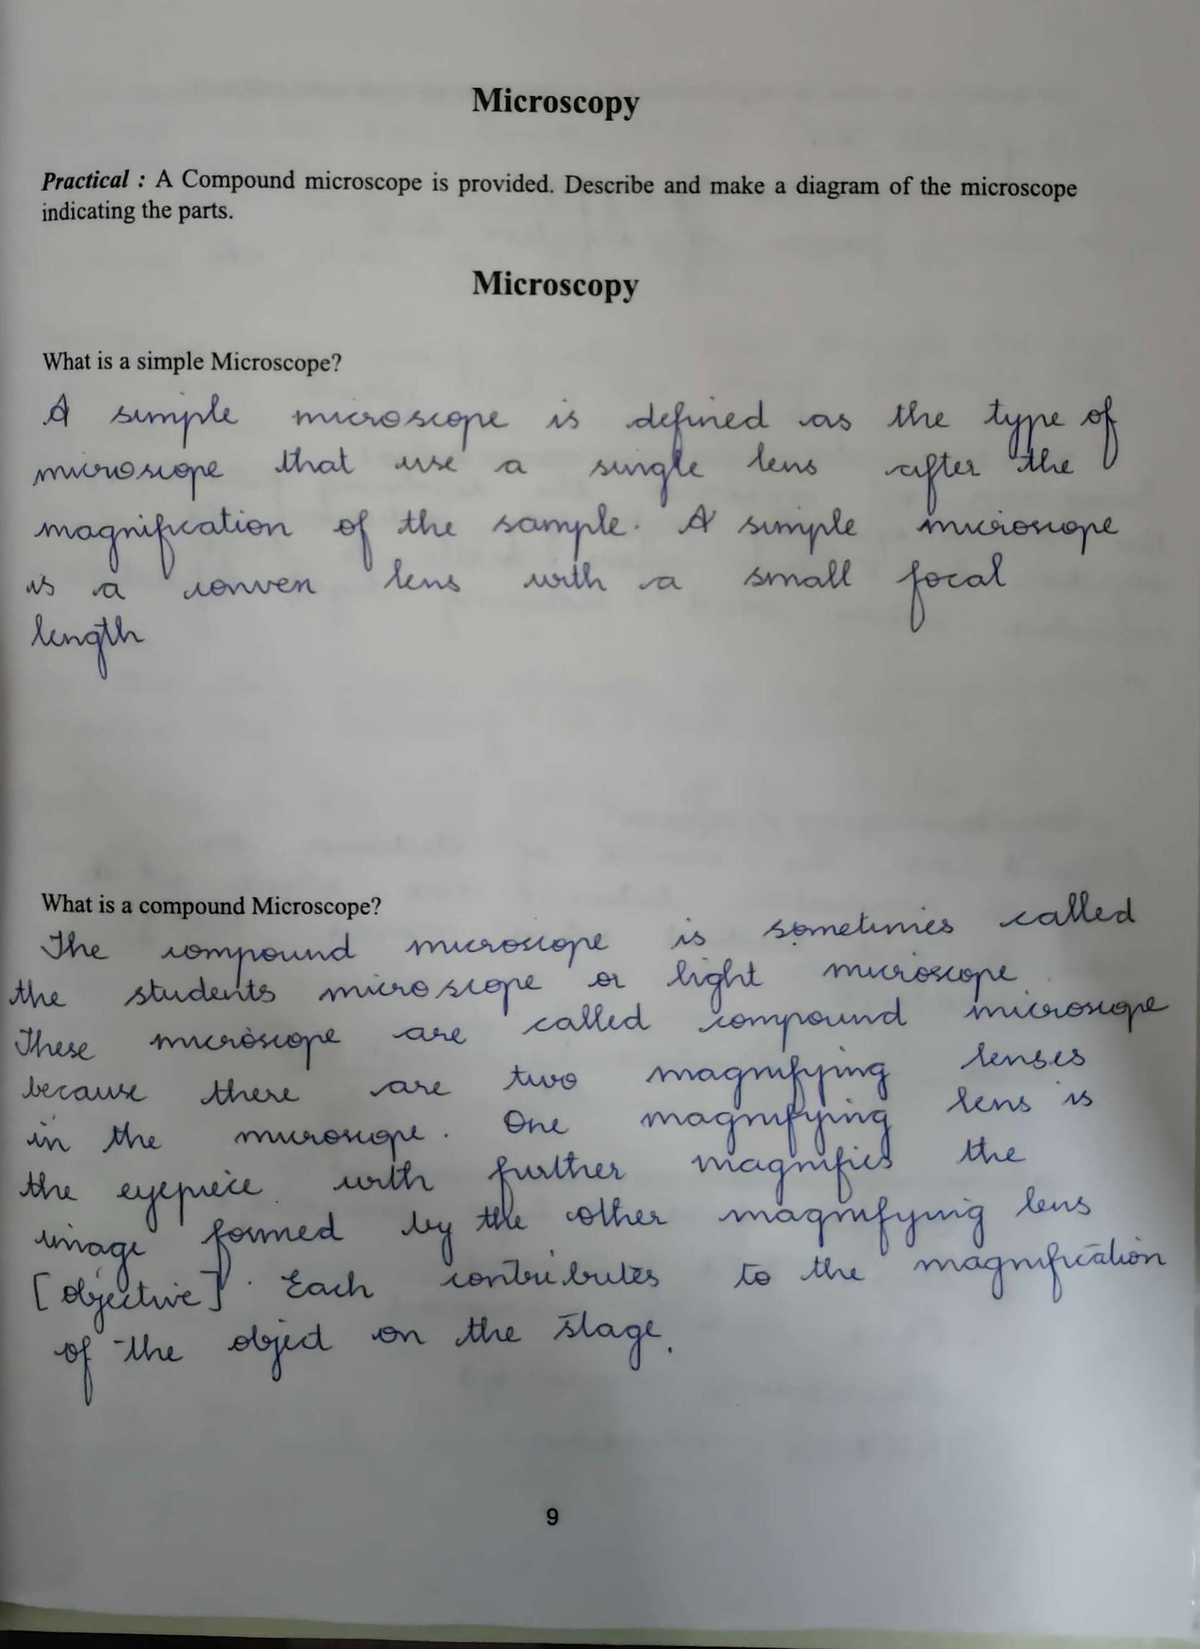 Microscopy
Practical : A Compound microscope is provided. Describe and make a diagram of the microscope
indicating the parts.
Microscopy
What is a simple Microscope?
A simple microscope is defined as the type of
microscope that use a single lens after the
magnification of the sample. A simple microscope
is a conven lens with a small focal
length
What is a compound Microscope?
The compound microscope is sometimes called
the students microscope or light microscope
These microscope are called compound microscope
because there are two magnifying lenses
in the microscope. One magnifying lens is
the eyepiece with further magnifies the
image formed by the other magnifying lens
[objective]. Each contributes to the magnification
of the object on the stage.
9